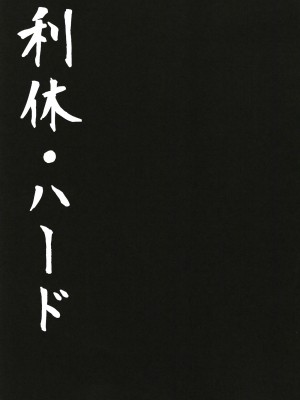 利休・ハード